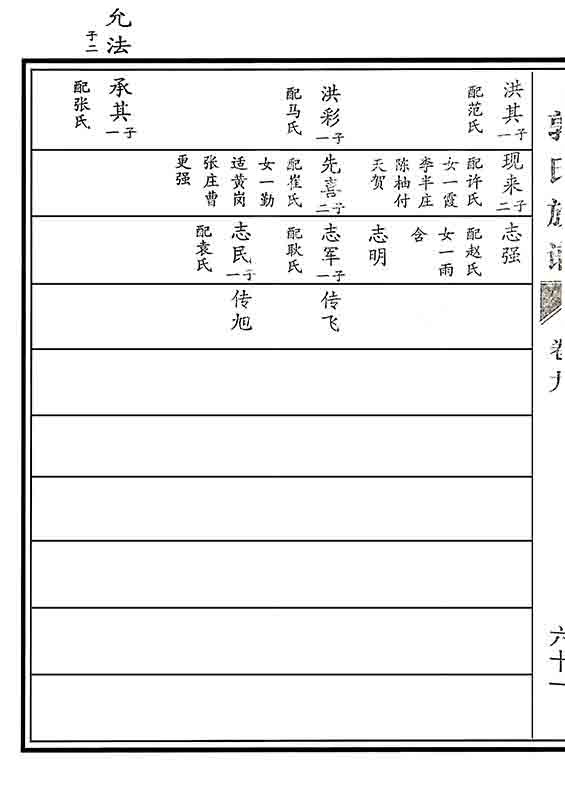 卷九
六十一
洪其
子一
配范氏
洪彩
子一
配马氏
允法
子二
承其
子一
配张氏
现来
子二
配许氏
女一霞
李半庄
陈抽付
天贺
先喜
子二
配崔氏
女一勤
适黄岗
张庄曹
更强
志强
配赵氏
女一雨
含
志明
志军
子一
配耿氏
志民
子一
配袁氏
传飞
传旭